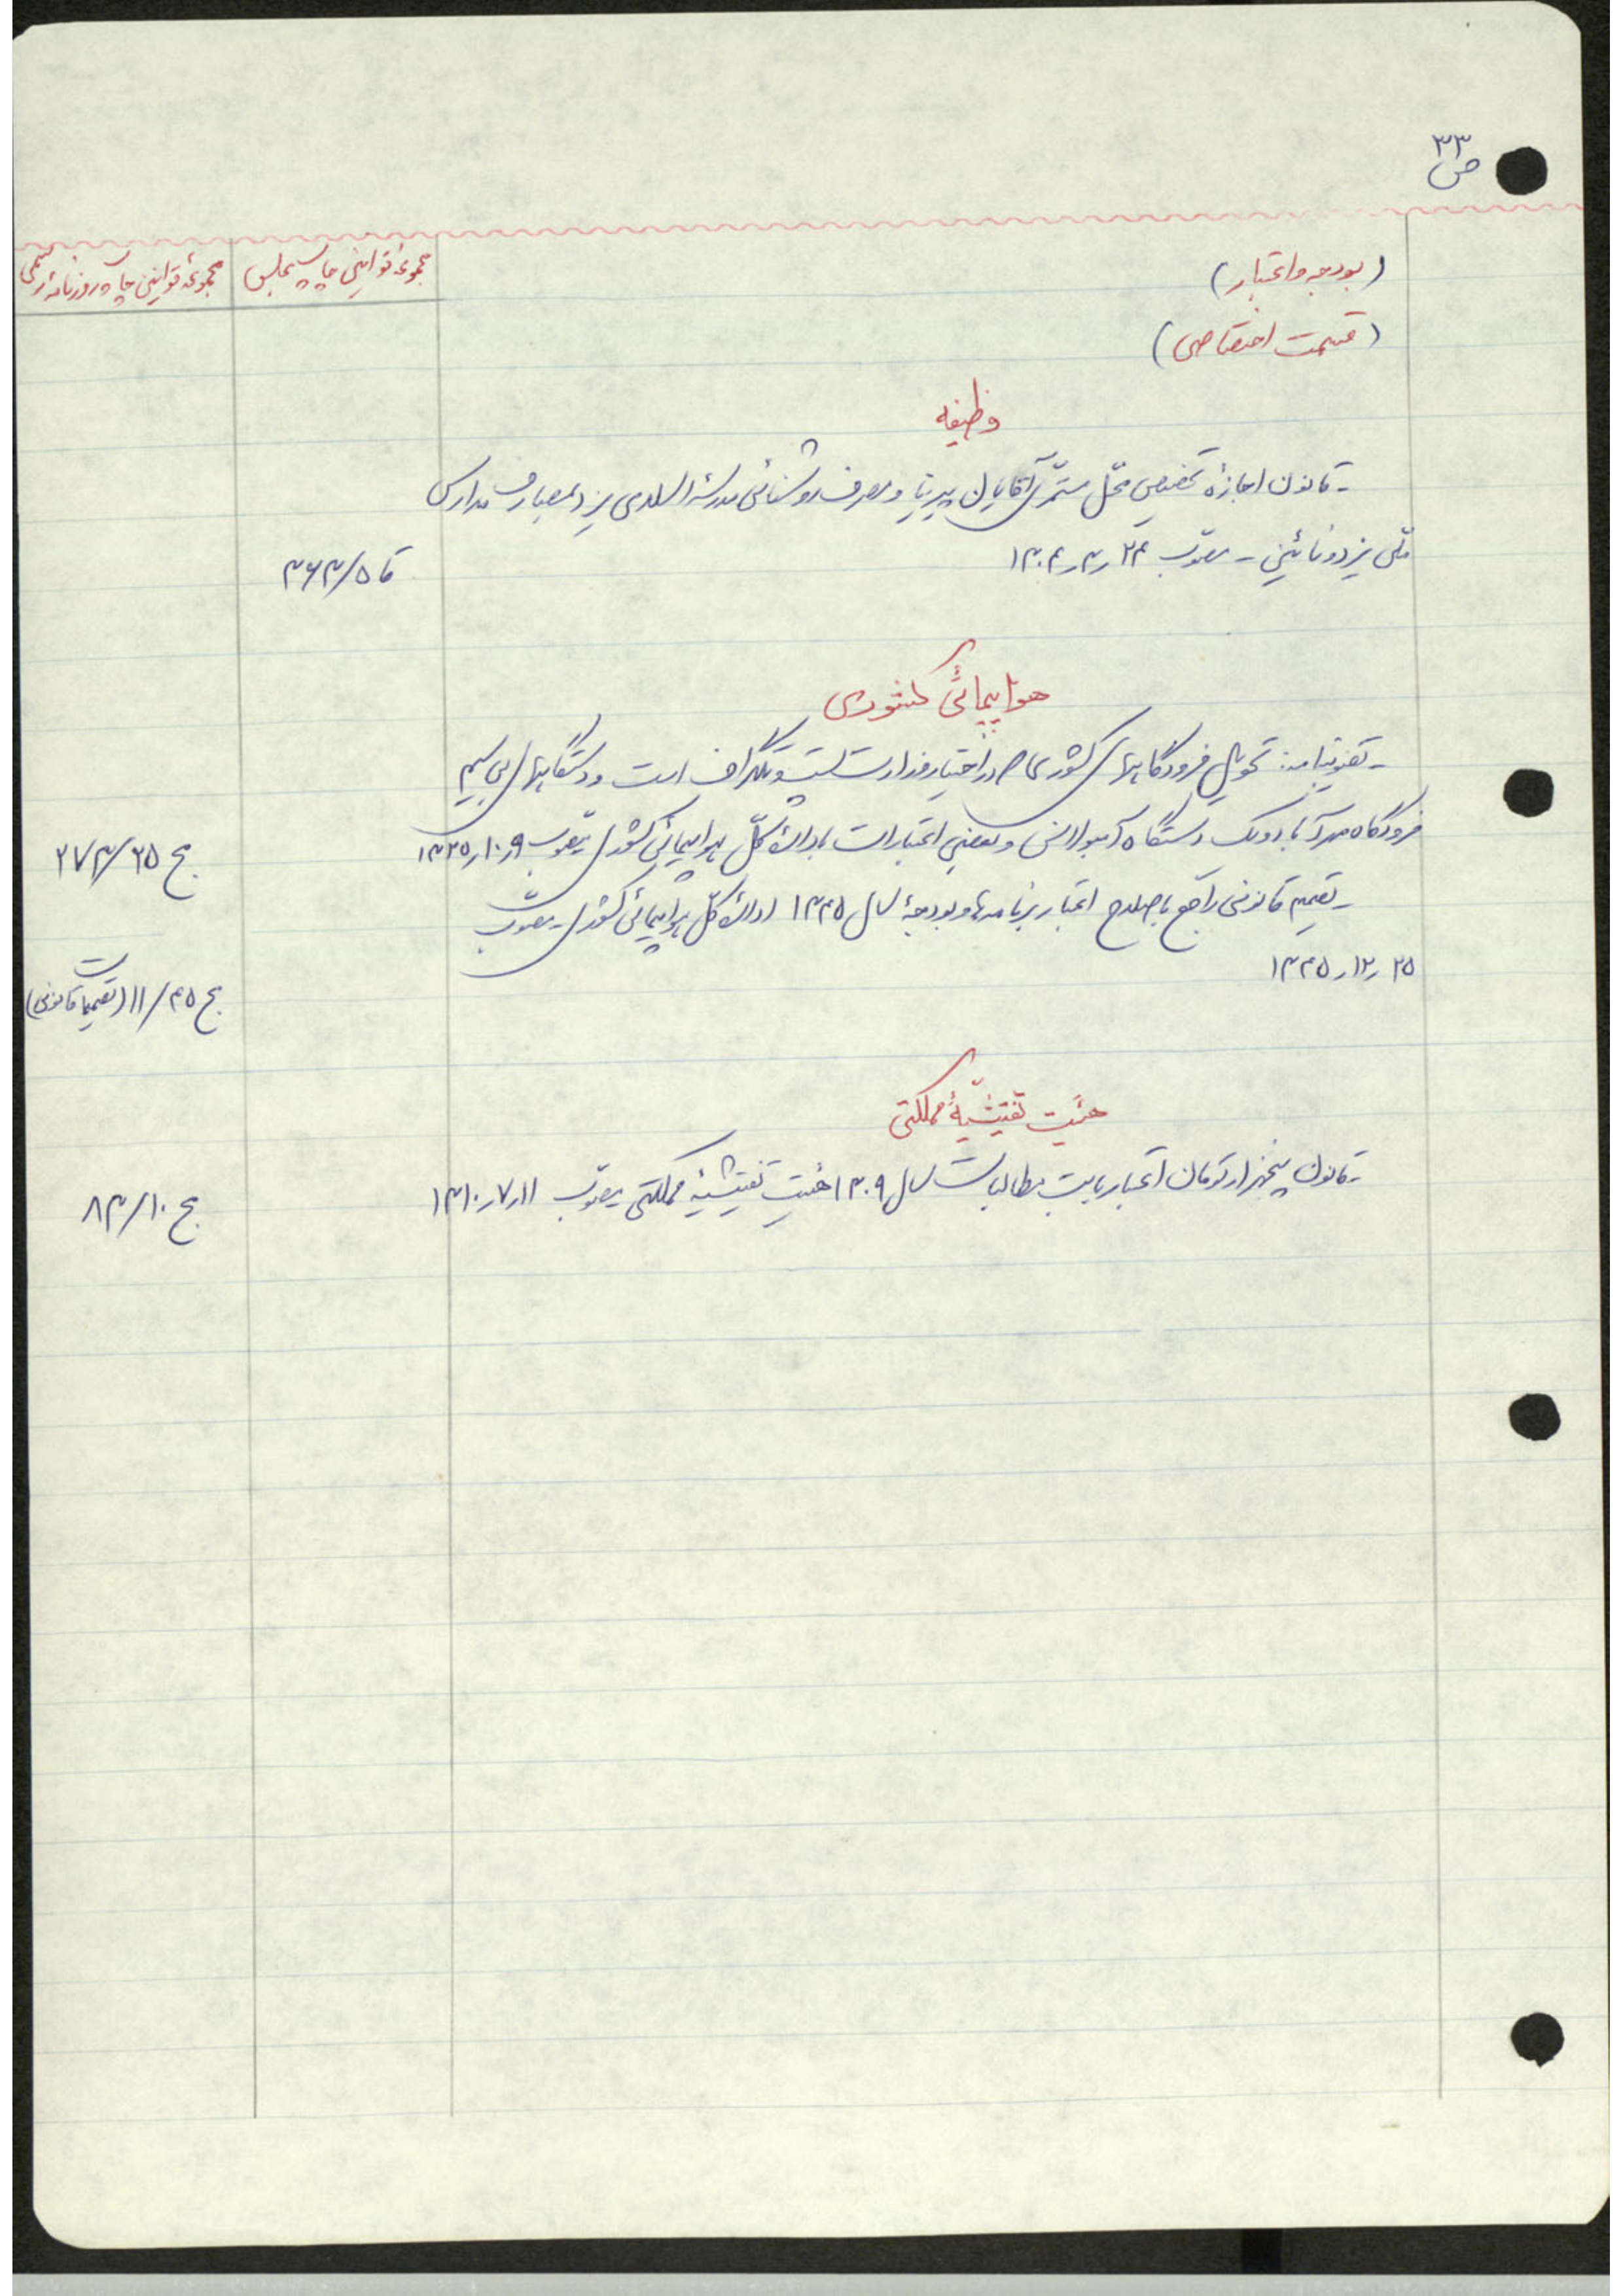 ص ۳۳
(بودجه و اعتبار)
(قسمت اختصاصی)
مجموعهٔ قوانین چاپ مجلس
مجموعهٔ قوانین چاپ روزنامهٔ رسمی
وظیفه
ـ قانون اجازهٔ تخصیص محل مستمری آقایان پیرنیا و مصرف روشنائی مدرسهٔ اسلامی یزد بمصارف مدارس
ملّی یزد و نائین ـ مصوّب ۲۴ر۳ر۱۳۰۴
قا ۵/۳۶۳
هواپیمائی کشوری
ـ تصویبنامه: تحویل فرودگاههای کشوری که در اختیار وزارت پست و تلگراف است و دستگاههای بی سیم
فرودگاه مهرآباد و یک دستگاه آمبولانس و بعضی اعتبارات باداره کلّ هواپیمائی کشوری مصوب ۹ر۱۰ر۱۳۲۵
مج ۲۵/۲۷۳
ـ تصمیم قانونی راجع باصلاح اعتبار برنامه‌ها و بودجهٔ سال ۱۳۴۵ ادارهٔ کلّ هواپیمائی کشوری ـ مصوّب
۲۵ر۱۲ر۱۳۴۵
مج ۴۵/۱۱ (تصمیمات قانونی)
هئیت تفتیشیّهٔ مملکتی
ـ قانون پنجهزار تومان اعتبار بابت مطالبات سال ۱۳۰۹ هئیت تفتیشیهٔ مملکتی مصوّب ۱۱ر۷ر۱۳۱۰
مج ۱۰/۸۳